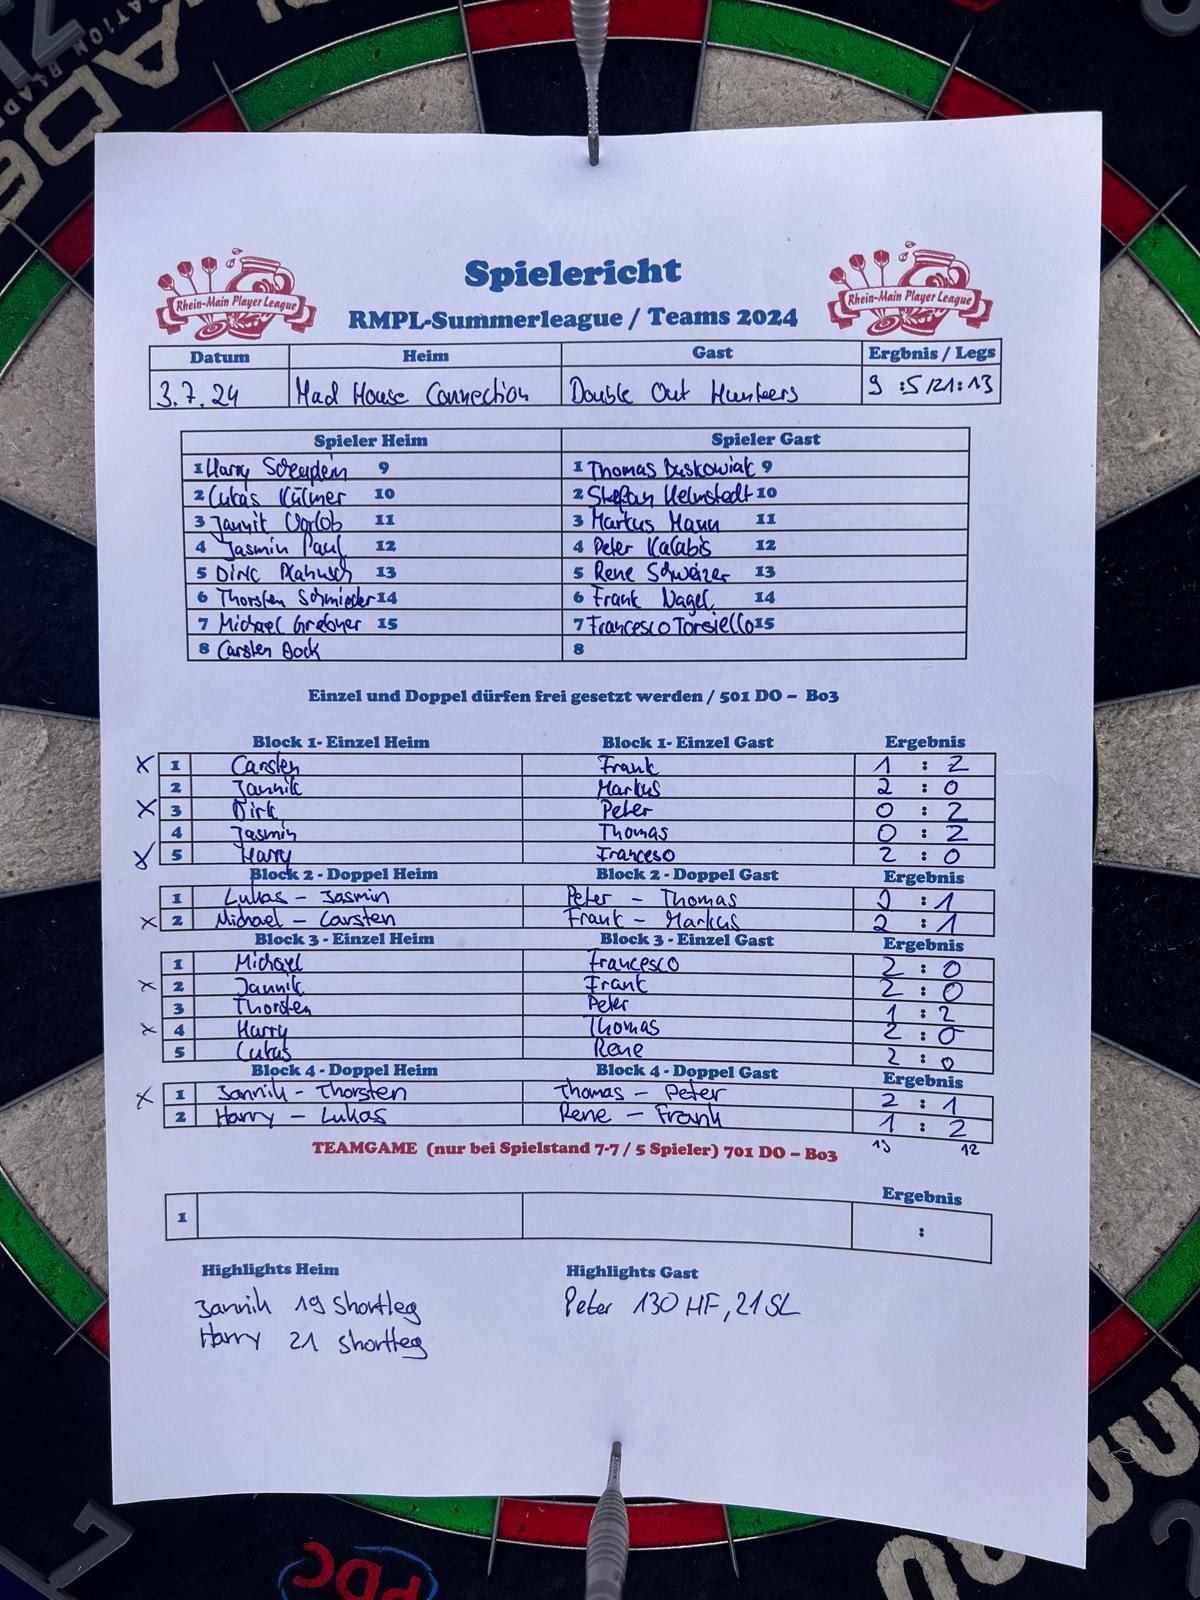 Rhein-Main Player League
Spielericht
Rhein-Main Player League
RMPL-Summerleague / Teams 2024
Datum Heim Gast Ergbnis / Legs
3.7.24 Mad House Connection Double Out Hunters 9 :5/21:13
Spieler Heim Spieler Gast
1 Harry 9 1 Thomas 9
2 Lukas 10 2 Stefan Helmstedt 10
3 Jannik 11 3 Markus Mann 11
4 Jasmin Paul 12 4 Peter Kalabis 12
5 Dirk 13 5 Rene Schweizer 13
6 Thorsten Schmieder 14 6 Frank Nagel 14
7 Michael 15 7 Francesco Torsiello 15
8 Carsten Bock 8
Einzel und Doppel dürfen frei gesetzt werden / 501 DO – Bo3
Block 1- Einzel Heim Block 1- Einzel Gast Ergebnis
X 1 Carsten Frank 1 : 2
2 Jannik Markus 2 : 0
X 3 Dirk Peter 0 : 2
4 Jasmin Thomas 0 : 2
X 5 Harry Franceso 2 : 0
Block 2 - Doppel Heim Block 2 - Doppel Gast Ergebnis
1 Lukas – Jasmin Peter – Thomas 2 : 1
X 2 Michael – Carsten Frank – Markus 2 : 1
Block 3 - Einzel Heim Block 3 - Einzel Gast Ergebnis
1 Michael Francesco 2 : 0
X 2 Jannik Frank 2 : 0
3 Thorsten Peter 1 : 2
X 4 Harry Thomas 2 : 0
5 Lukas Rene 2 : 0
Block 4 - Doppel Heim Block 4 - Doppel Gast Ergebnis
X 1 Jannik - Thorsten Thomas – Peter 2 : 1
2 Harry – Lukas Rene – Frank 1 : 2
TEAMGAME (nur bei Spielstand 7-7 / 5 Spieler) 701 DO – Bo3
12
Ergebnis
1 :
Highlights Heim Highlights Gast
Jannik 19 Shortleg Peter 130 HF, 21 SL
Harry 21 shortleg
7
PDC